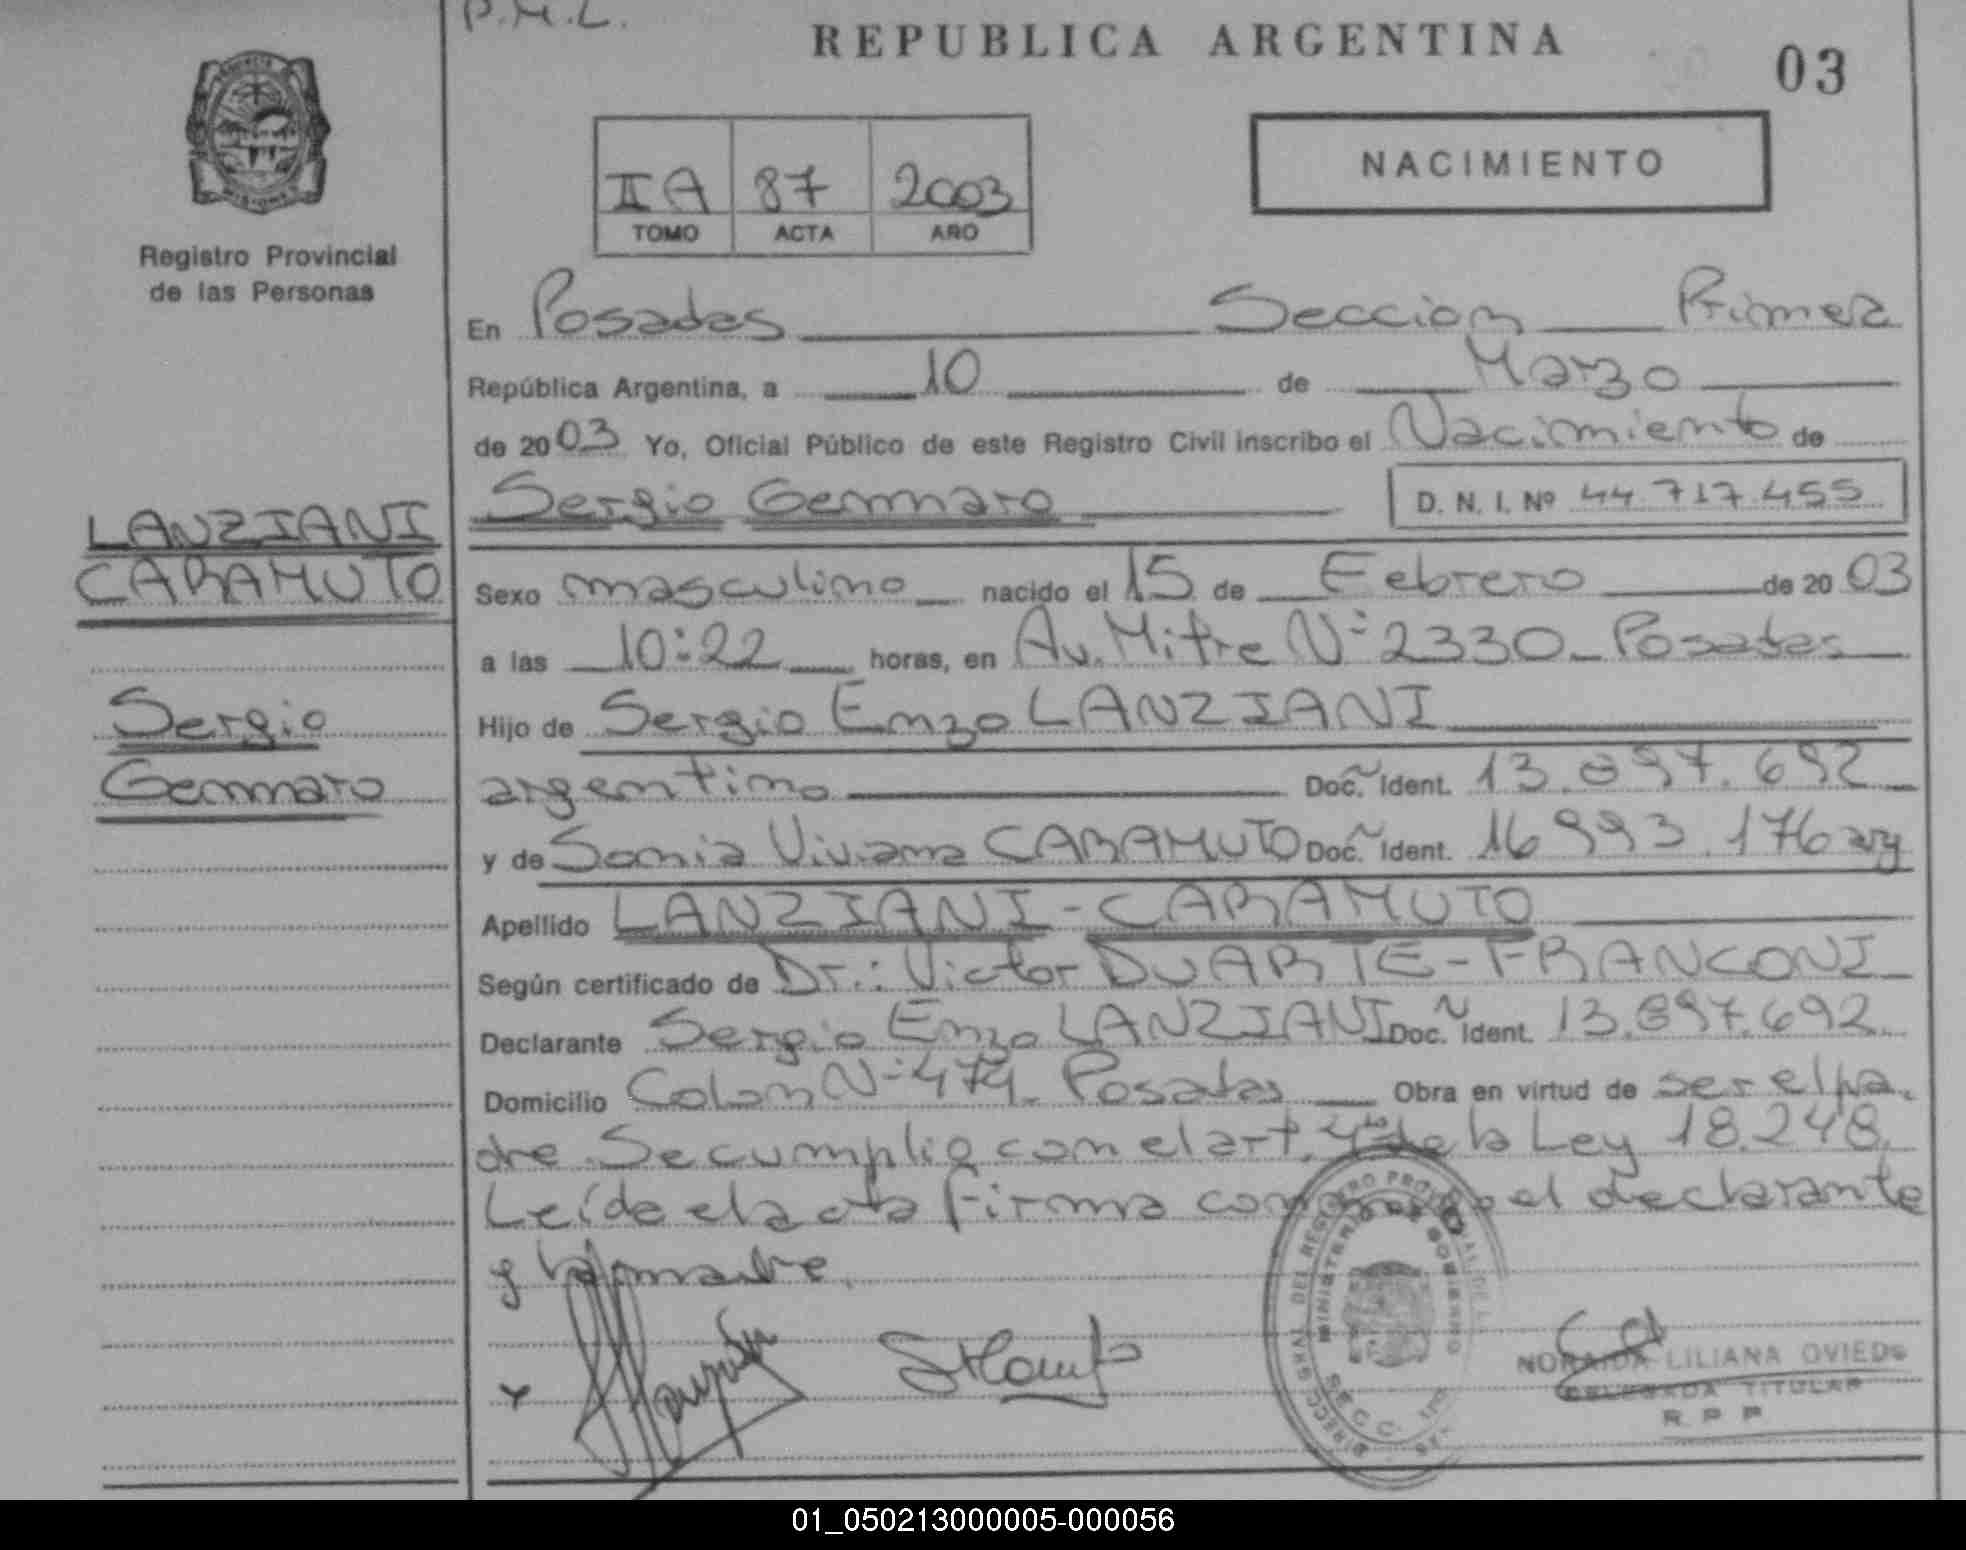 P.M.L.
REPUBLICA ARGENTINA
03
Registro Provincial
de las Personas
IIA 87 2003
TOMO ACTA AÑO
NACIMIENTO
En Posadas Seccion Primera
República Argentina, a 10 de Marzo
de 2003 Yo, Oficial Público de este Registro Civil inscribo el Nacimiento de
Sergio Gennaro D. N. I. Nº 44.717.455
LANZIANI
CARAMUTO
Sergio
Gennaro
Sexo masculino nacido el 15 de Febrero de 2003
a las 10:22 horas, en Av. Mitre Nº 2330 - Posadas
Hijo de Sergio Enzo LANZIANI
argentino Doc. Ident. 13.897.692
y de Sonia Viviana CARAMUTO Doc. Ident. 16.993.176 arg
Apellido LANZIANI - CARAMUTO
Según certificado de Dr.: Victor DUARTE - FRANCONI
Declarante Sergio Enzo LANZIANI Doc. Ident. 13.897.692
Domicilio Colon Nº 474 - Posadas Obra en virtud de ser el pa-
dre. Se cumplio con el art. 4º de la Ley 18.248.
Leída el acta firma conmigo el declarante
y la madre.
DIRECC. GRAL. DEL REGISTRO PROVINCIAL DE LAS
MINISTERIO DE GOBIERNO
SECC.
NORAIDA LILIANA OVIEDO
DELEGADA TITULAR
R.P.P
01_050213000005-000056